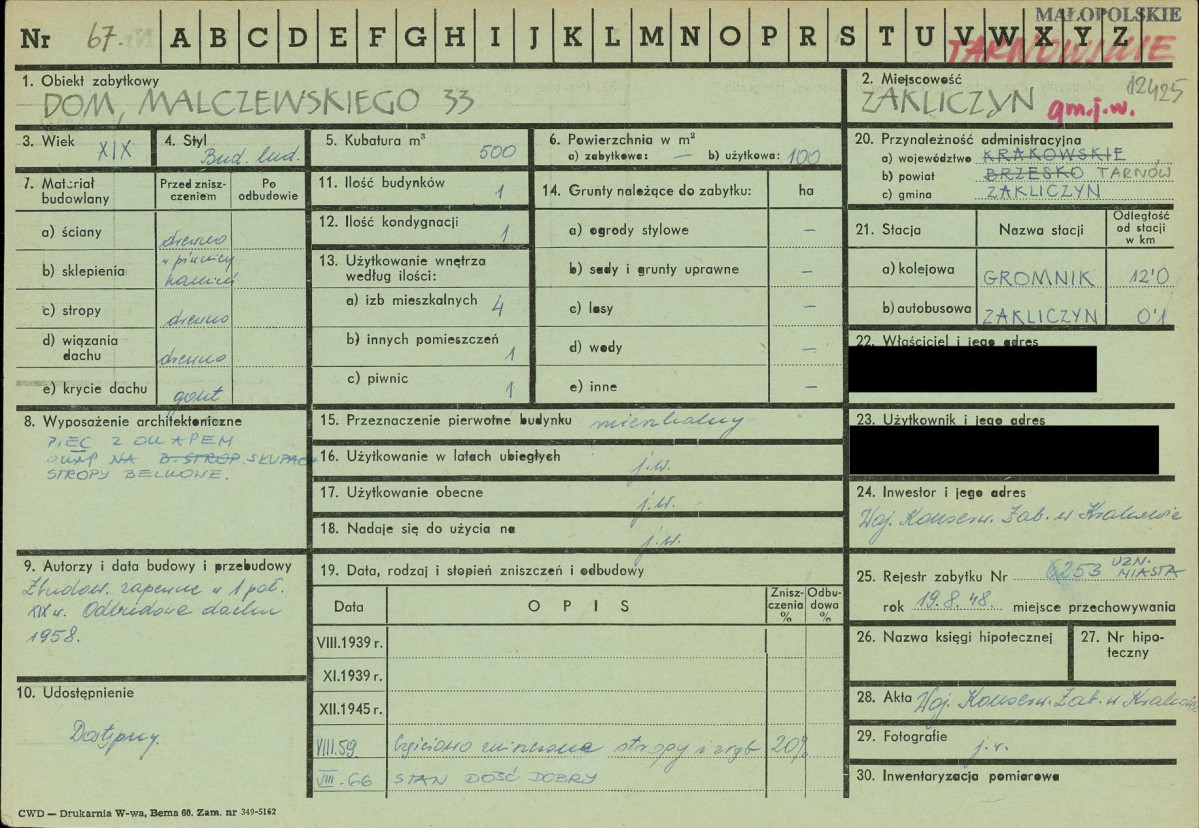 MAŁOPOLSKIE
Nr 67. A B C D E F G H I J K L M N O P R S T U V W X Y Z
TARNOWSKIE
12425
1. Obiekt zabytkowy
DOM, MALCZEWSKIEGO 33
2. Miejscowość
ZAKLICZYN gm.j.w.
3. Wiek XIX
4. Styl Bud. lud.
5. Kubatura m³ 500
6. Powierzchnia w m²
a) zabytkowa: — b) użytkowa: 100
20. Przynależność administracyjna
a) województwo KRAKOWSKIE
b) powiat BRZESKO TARNÓW
c) gmina ZAKLICZYN
7. Materiał budowlany
Przed zniszczeniem
Po odbudowie
a) ściany drewno
b) sklepienia w piwnicy kamień
c) stropy drewno
d) wiązania dachu drewno
e) krycie dachu gont
11. Ilość budynków 1
12. Ilość kondygnacji 1
13. Użytkowanie wnętrza według ilości:
a) izb mieszkalnych 4
b) innych pomieszczeń 1
c) piwnic 1
14. Grunty należące do zabytku: ha
a) ogrody stylowe —
b) sady i grunty uprawne —
c) lasy —
d) wody —
e) inne —
21. Stacja Nazwa stacji Odległość od stacji w km
a) kolejowa GROMNIK 12'0
b) autobusowa ZAKLICZYN 0'1
22. Właściciel i jego adres
23. Użytkownik i jego adres
8. Wyposażenie architektoniczne
PIEC Z OKAPEM
OKAP NA B. STROP SŁUPACH
STROPY BELKOWE.
15. Przeznaczenie pierwotne budynku mieszkalny
16. Użytkowanie w latach ubiegłych j.w.
17. Użytkowanie obecne j.w.
18. Nadaje się do użycia na j.w.
24. Inwestor i jego adres
Woj. Konserw. Zab. w Krakowie
9. Autorzy i data budowy i przebudowy
Zbudow. zapewne w 1 poł.
XIX w. Odbudowa dachu
1958.
19. Data, rodzaj i stopień zniszczeń i odbudowy
Data OPIS Zniszczenia % Odbudowa %
VIII.1939 r.
XI.1939 r.
XII.1945 r.
VIII.59. Częściowo zniszczone stropy i zrąb 20%
VIII.66 STAN DOŚĆ DOBRY
25. Rejestr zabytku Nr 6253 UZN. MIASTA
rok 19.8.48. miejsce przechowywania
26. Nazwa księgi hipotecznej
27. Nr hipoteczny
10. Udostępnienie
Dostępny.
28. Akta Woj. Konserw. Zab. w Krakowie
29. Fotografie j.w.
30. Inwentaryzacja pomiarowa
CWD — Drukarnia W-wa, Bema 60. Zam. nr 349-5162